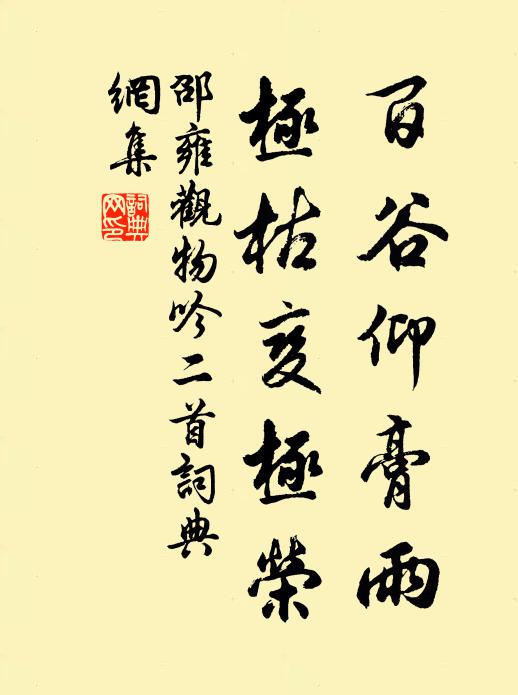 百谷仰膏雨
極枯变極榮
邵雍觀物吟二首詞典
網集
詞典
网印